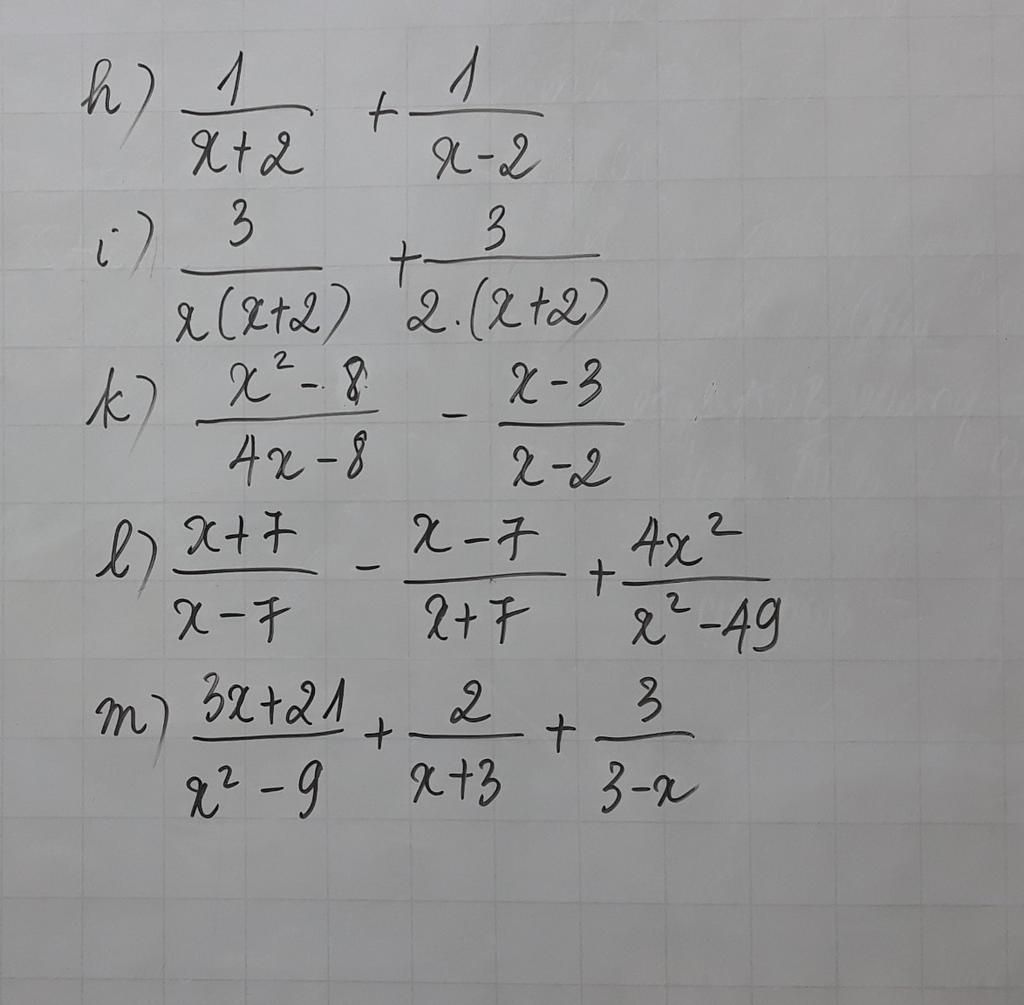 h) \frac{1}{x+2} + \frac{1}{x-2}
i) \frac{3}{x(x+2)} + \frac{3}{2.(x+2)}
k) \frac{x^2-8}{4x-8} - \frac{x-3}{x-2}
l) \frac{x+7}{x-7} - \frac{x-7}{x+7} + \frac{4x^2}{x^2-49}
m) \frac{3x+21}{x^2-9} + \frac{2}{x+3} + \frac{3}{3-x}